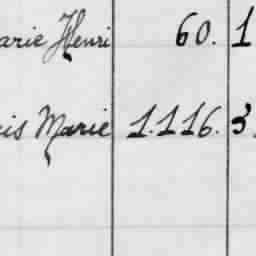 arie Henri 60. 1
is Marie 1.116. 3.